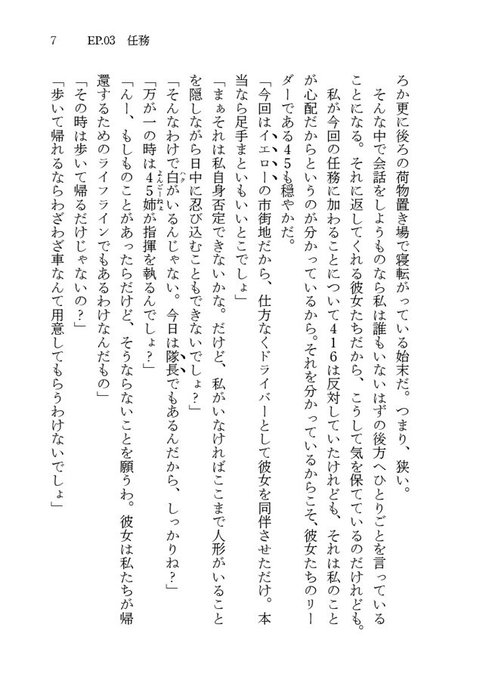 7　EP.03　任務
ろか更に後ろの荷物置き場で寝転がっている始末だ。つまり、狭い。
　そんな中で会話をしようものなら私は誰もいないはずの後方へひとりごとを言っている
ことになる。それに返してくれる彼女たちだから、こうして気を保てているのだけれども。
　私が今回の任務に加わることについて４１６は反対していたけれども、それは私のこと
が心配だからというのが分かっているから。それを分かっているからこそ、彼女たちのリー
ダーである４５も穏やかだ。
「今回はイエローの市街地だから、仕方なくドライバーとして彼女を同伴させただけ。本
当なら足手まといもいいとこでしょ」
「まぁそれは私自身否定できないかな。だけど、私がいなければここまで人形がいること
を隠しながら日中に忍び込むこともできないでしょ？」
「そんなわけで白がいるんじゃない。今日は隊長でもあるんだから、しっかりね？」
「万が一の時は４５姉が指揮を執るんでしょ？」
「んー、もしものことがあったらだけど、そうならないことを願うわ。彼女は私たちが帰
還するためのライフラインでもあるわけなんだもの」
「その時は歩いて帰るだけじゃないの？」
「歩いて帰れるならわざわざ車なんて用意してもらうわけないでしょ」